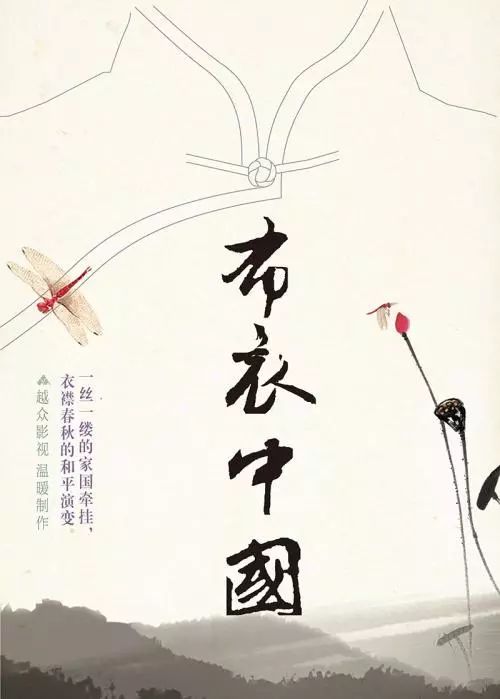 布衣中國
一丝一缕的家国牵挂，
衣襟春秋的和平演变。
越众影视 温暖制作